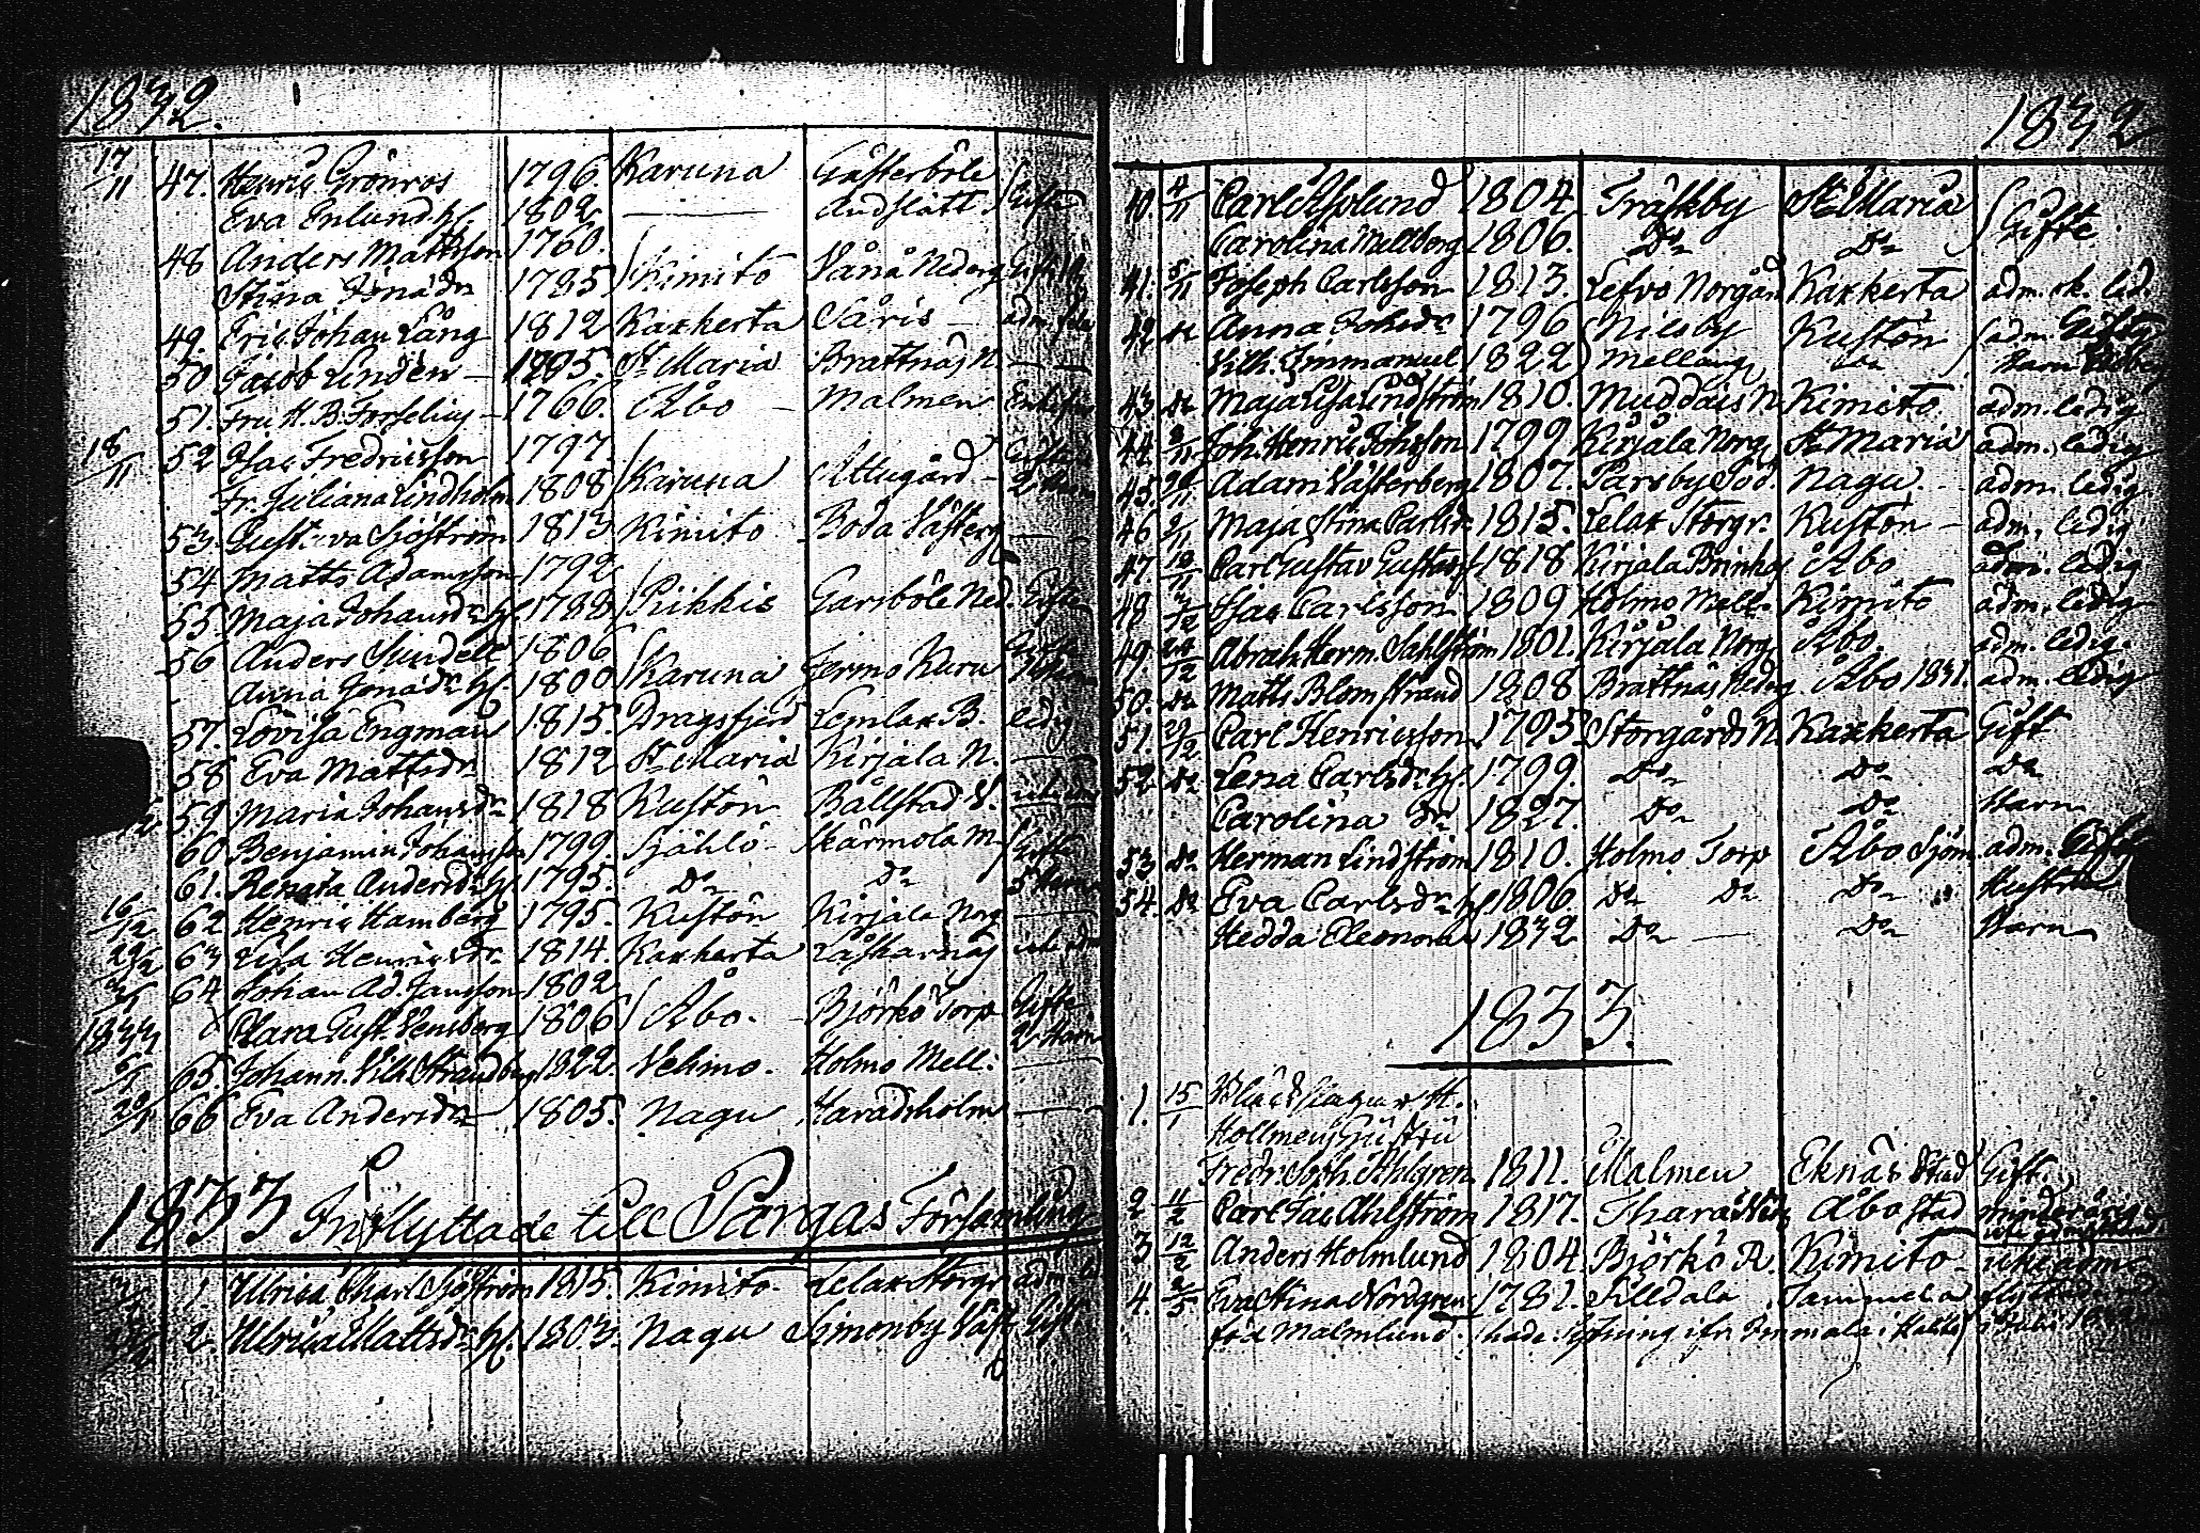 1832.
17/11 47. Henric Grönros 1796. Karuna Gåsterböle
Eva Enlund h. 1802 Gifte
48 Anders Mattsson 1760.
Stina Jonsdr 1785 Kimito Vånå Nederg.
49. Eric Johan Lång 1812 Kaxkerta Såris
50 Jacob Lindén 1795. St Maria Brattnäs N.
51. Fru H. B. Forselius 1766. Åbo Malmen
18/11 52 Isac Fredricsson 1797.
Fr. Juliana Lindholm 1808 Karuna Attugård
53. Gustava Sjöström 1813 Kimito Boda Västerg
54 Matts Adamsson 1792
55. Maja Johansdr h. 1788 Piikkis Garsböle Ned.
56 Anders Sundell 1806
Anna Jonasdr h. 1800 Karuna Jermo Kuru
57. Lovisa Engman 1815. Dragsfjerd Lemlax B. ledig
58 Eva Mattsdr 1812 St Maria Kirjala N.
59 Maria Johansdr 1818 Kustön Bållstad V.
60 Benjamin Johansson 1799 Själlö Skärmola M. Gifte
61. Renata Andersdr h. 1795. Do Do 5 Barn
16/12 62 Henric Hamberg 1795. Kustön Kirjala Norg
63 Lisa Henricsdr 1814. Kaxkerta Låskarnäs
64 Johan Ad. Jansson 1802
1833 Clara Gust. Vensberg 1806 Åbo. Björkö Torp Gifte 2 Barn
65. Johann. Vilh Strandberg 1822. Vehmo. Holmo Mell.
66 Eva Andersdr 1805. Nagu Haradsholm
1833 Inflyttade till Pargas Församling
1. Ulrica Charl Sjöström 1815. Kimito Lelax Storgr
2. Ulrica Mattsdr h. 1803. Nagu Simonby Väst Gift
1832
40. 4/11 Carl Asplund 1804 Träskby St Maria
Carolina Mellberg 1806. Do Do Gifte
41. 5/11 Joseph Carlsson 1813. Lefvo Norgård Kaxkerta adm. ok. led.
42 do Anna Johsdr 1796 Nilsby Kustön
Vilh. Immanuel 1822 Mellang do
43 do Maja Lisa Lindström 1810. Muddais N Kimito adm. ledig
44. Joh. Henric Johsson 1799 Kirjala Norg St Maria adm. ledig
45. Adam Västerberg 1807. Parsby Söd. Nagu. adm. ledig
46 Maja Stina Carlsdr 1815. Lelax Storgr. Kustön adm. ledig
47. Carl Gustav Gustafss 1818 Kirjala Brinkas Åbo adm. ledig
48 Isac Carlsson 1809 Holmo Mell. Kimito adm. ledig
49. Abrah. Herm. Sahlström 1801. Kirjala Norg Åbo. adm. ledig.
50. do Matts Blomstrand 1808 Brattnäs Nederg. Åbo 1831. adm. ledig
51. Carl Henricsson 1795 Storgårds N. Kaxkerta Gift
52 do Lena Carlsdr h. 1799. Do Do Do
Carolina dr 1827. Do Do Barn
53 do Herman Lindström 1810. Holmo Torp Åbo Sjöm. adm. Gift
54. do Eva Carlsdr h 1806. Do Do Do Hustru
Hedda Eleonora 1832 Do Do Barn
1833.
1. 15/1
Hollmens Hustru
Fredr. Soph. Ahlgren 1811. Malmen Eknäs Stad Gift.
2 Carl Isac Ahlström 1817. Åbo stad minderårig
3 12/2 Anders Holmlund 1804 Björkö R. Kimito
4. Eva Stina Nordgren 1781. Silldala Tammela
född Malmlund.